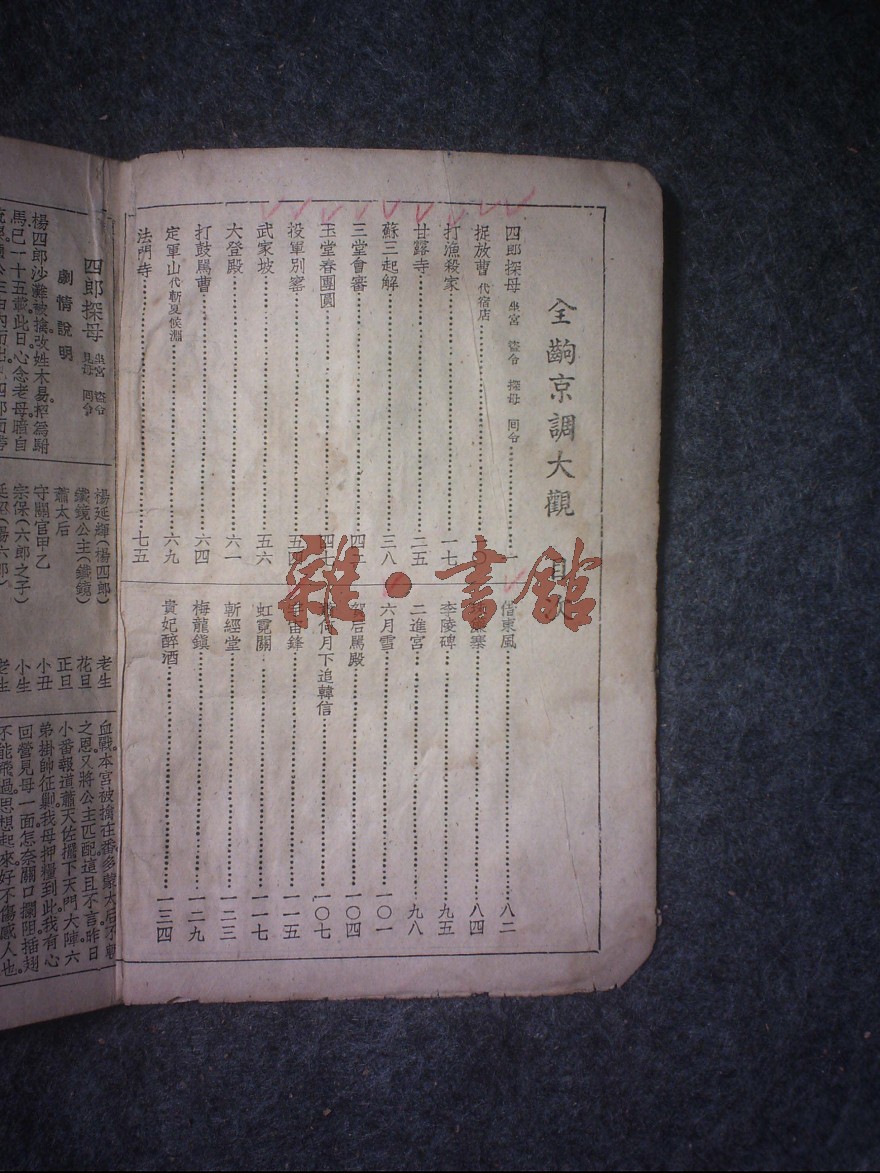 全齣京調大觀 目次
四郎探母 坐宮 盜令 探母 回令 一
捉放曹 代宿店
打漁殺家 一七
甘露寺 二五
蘇三起解 三八
三堂會審
玉堂春團圓 四七
投軍別窰 五四
武家坡 五六
大登殿 六一
打鼓罵曹 六四
定軍山 代斬夏候淵 六九
法門寺 七五
借東風 八二
寨 八四
李陵碑 九五
二進宮 九八
六月雪 一〇一
賀后罵殿 一〇四
蕭何月下追韓信 一〇七
雷鋒 一一五
虹霓關 一一七
斬經堂 一二三
梅龍鎮 一二九
貴妃醉酒 一三四
雜・書館
四郎探母 坐宮 盜令 見母 回令
劇情說明
楊四郎沙灘被擒改姓木易招為駙
馬已一十五載此日心念老母暗自
楊延輝(楊四郎) 老生
鐵鏡公主(鐵鏡) 花旦
蕭太后 正旦
守關官甲乙 小丑
宗保(六郎之子) 小生
延昭(楊六郎) 老生
血戰。本宮被擒在番多蒙太后不斬
之恩又將公主匹配這且不言。昨日
小番報道蕭天佐擺下天門大陣六
弟掛帥征剿。我母押糧到此我有心
回營見母一面怎奈關口攔阻插翅
不能飛過。思想起來好不傷感人也。